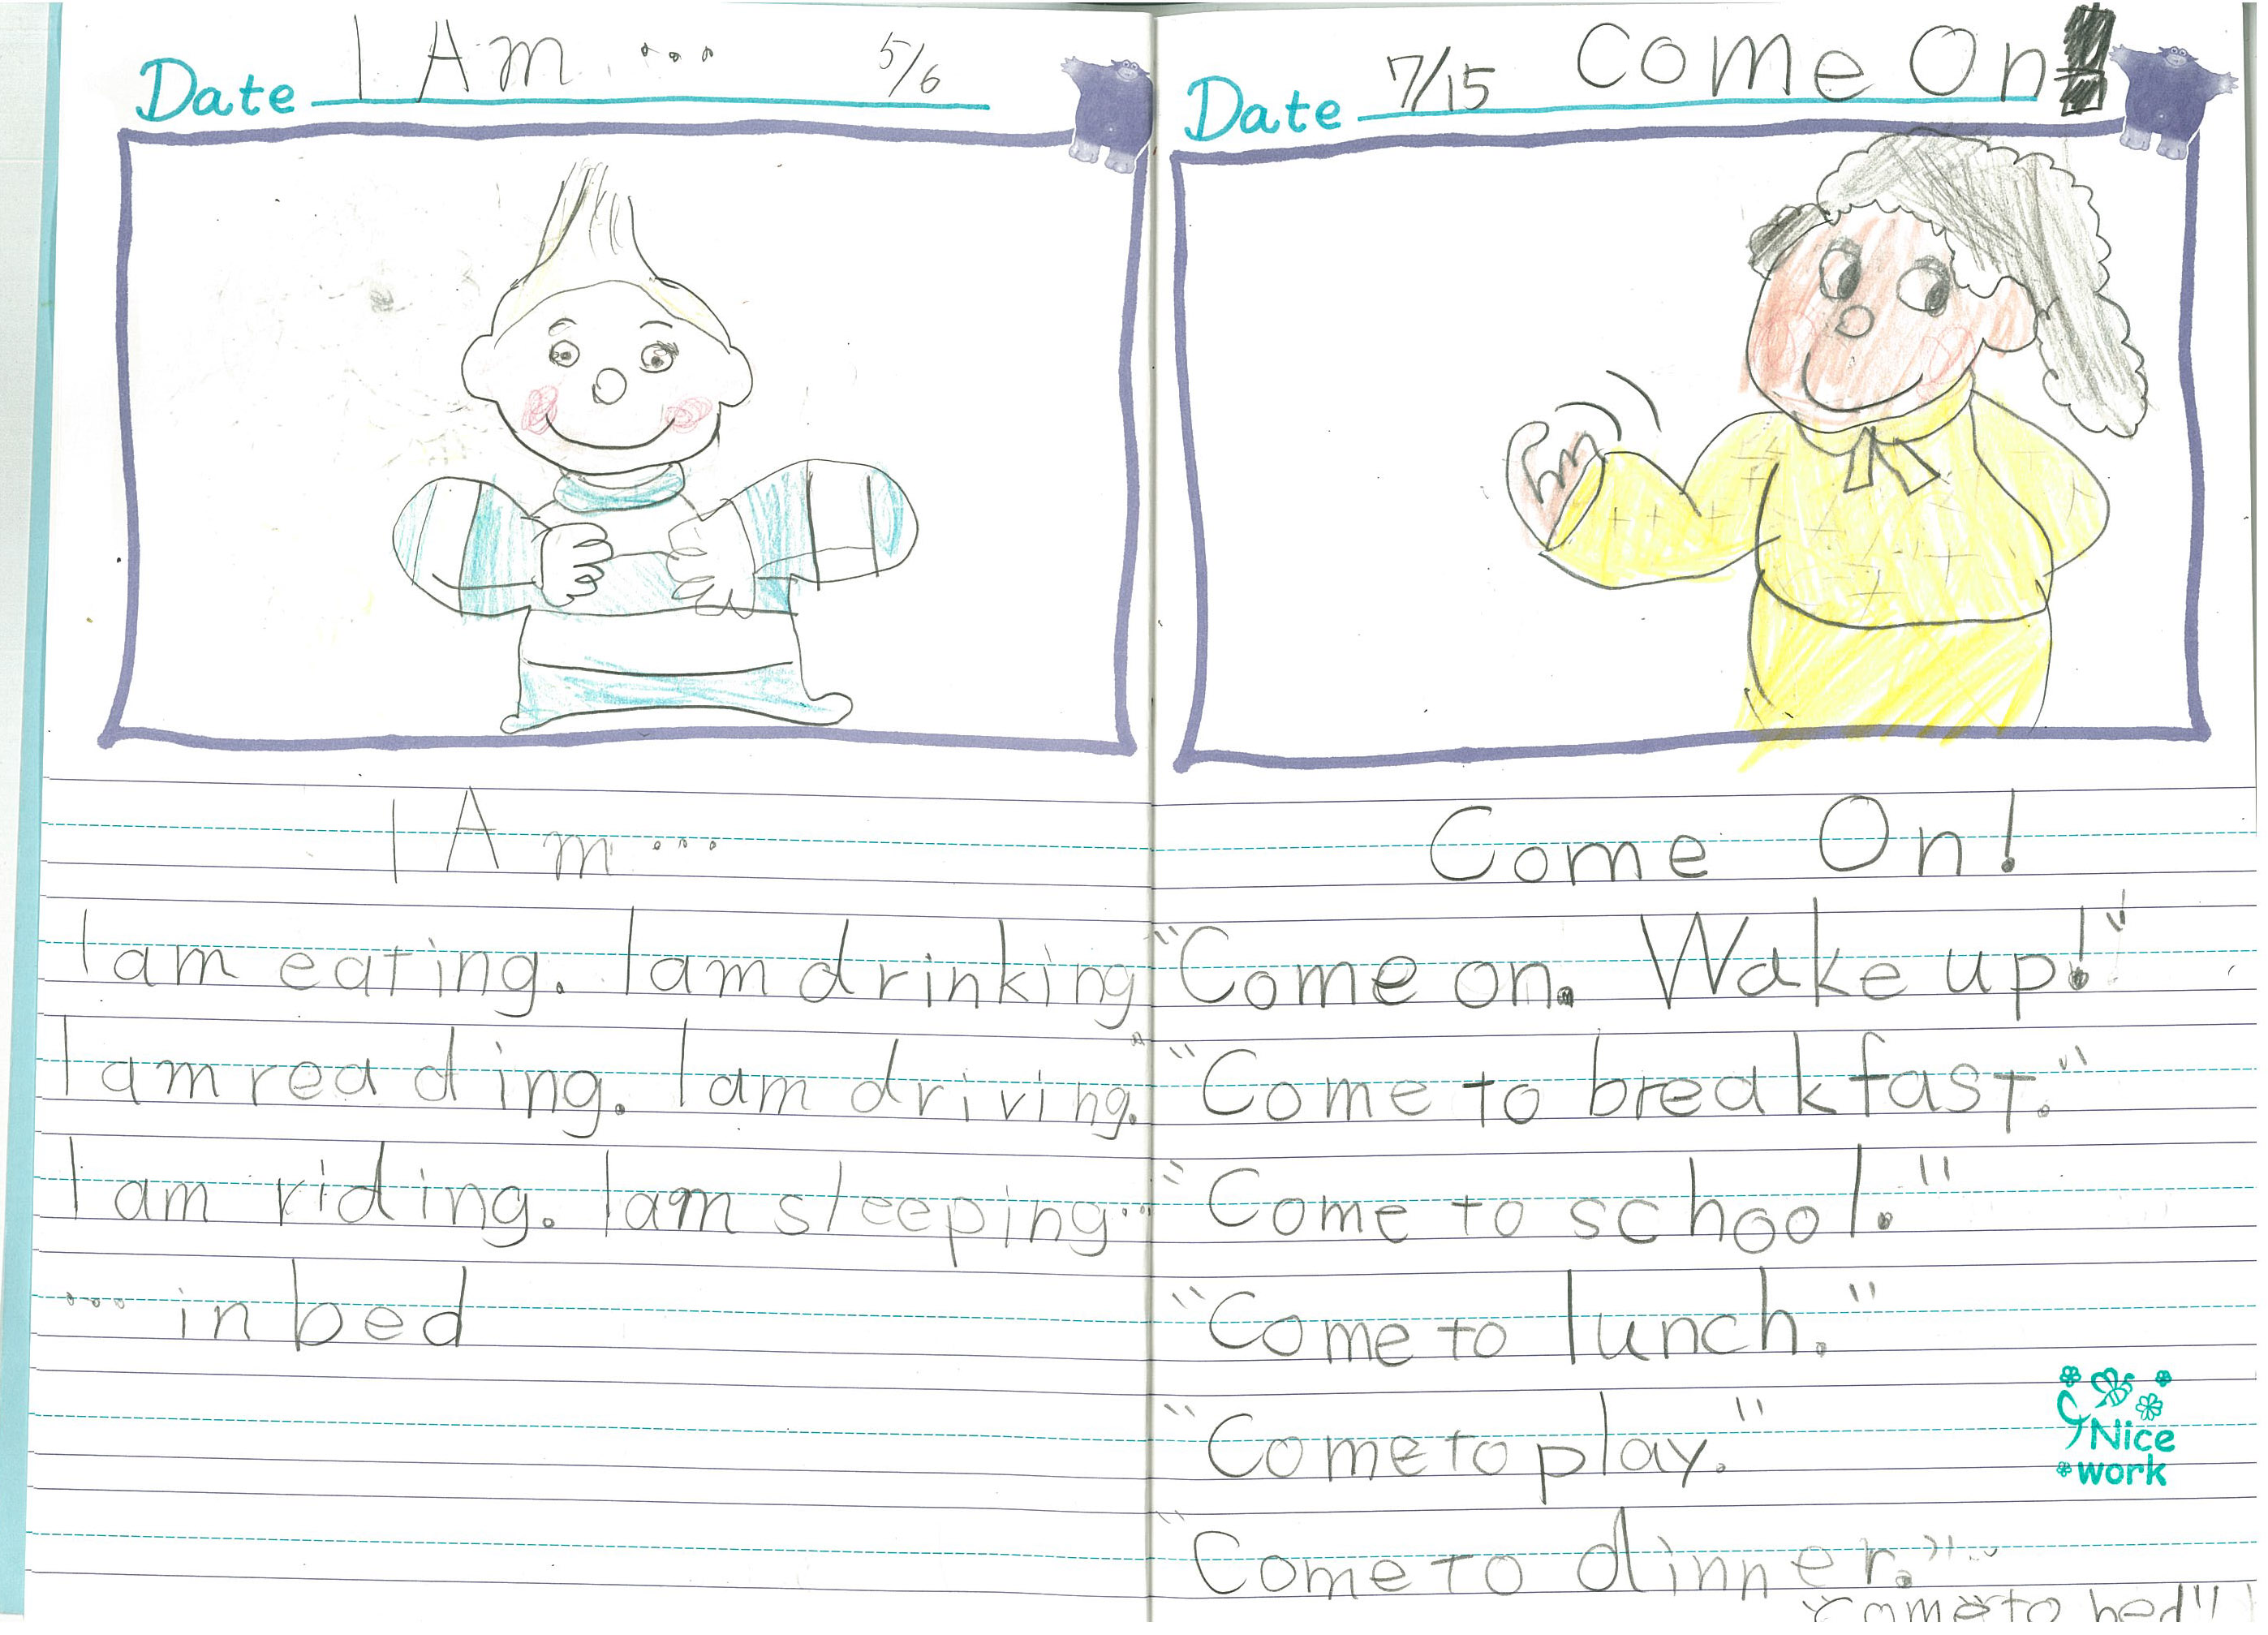 Date I Am ... 5/6
I Am ...
I am eating. I am drinking
I am reading. I am driving.
I am riding. I am sleeping...
... in bed
Date 7/15 Come On!
Come On!
"Come on. Wake up!"
"Come to breakfast."
"Come to school."
"Come to lunch."
"Come to play."
"Come to dinner."
"Come to bed"
Nice
work